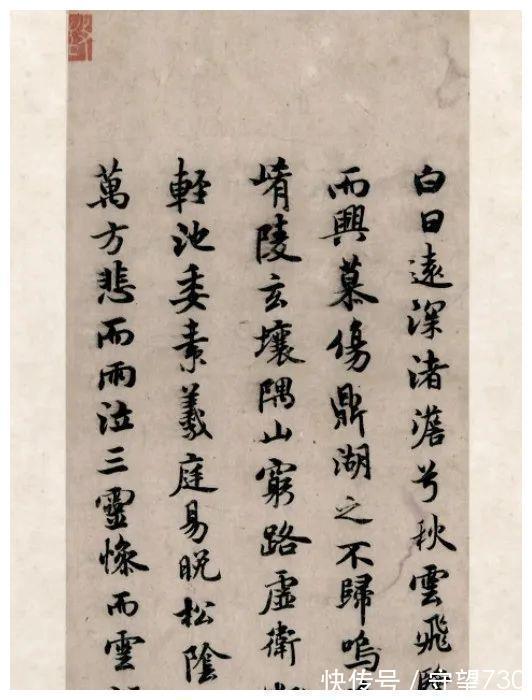 白日遠深渚澹兮秋雲飛
而興慕傷鼎湖之不歸嗚
崤陵玄壤隅山窮路虛衛
輕池委素羲庭易晚松陰
萬方悲而雨泣三靈慘而雲
快传号 / 守望730